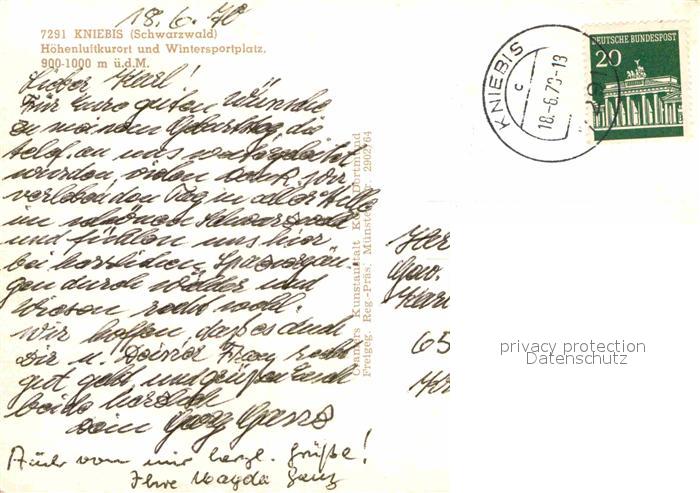 18.6.70
7291 KNIEBIS (Schwarzwald)
Höhenluftkurort und Wintersportplatz.
900-1000 m ü.d.M.
Lieber Karl!
Für Eure guten Wünsche
zu meinem Geburtstag, die
telef. an uns weitergeleitet
wurden vielen Dank. Wir
verleben den Tag in aller Stille
im schönen Schwarzwald
und fühlen uns hier
bei herrlichen Spaziergän-
gen durch Wälder und
Wiesen recht wohl.
Wir hoffen, daß es auch
Dir u. Deiner Frau recht
gut geht und grüßen Euch
beide herzlich
Georg
Auch von mir herzl. Grüße!
Ihre Magda
Kunstanstalt KG, Dortmund
Freigeg. Reg.-Präs. Münster Nr. 2902/64
KNIEBIS
c
18.-6.70-19
DEUTSCHE BUNDESPOST
20
65
privacy protection
Datenschutz